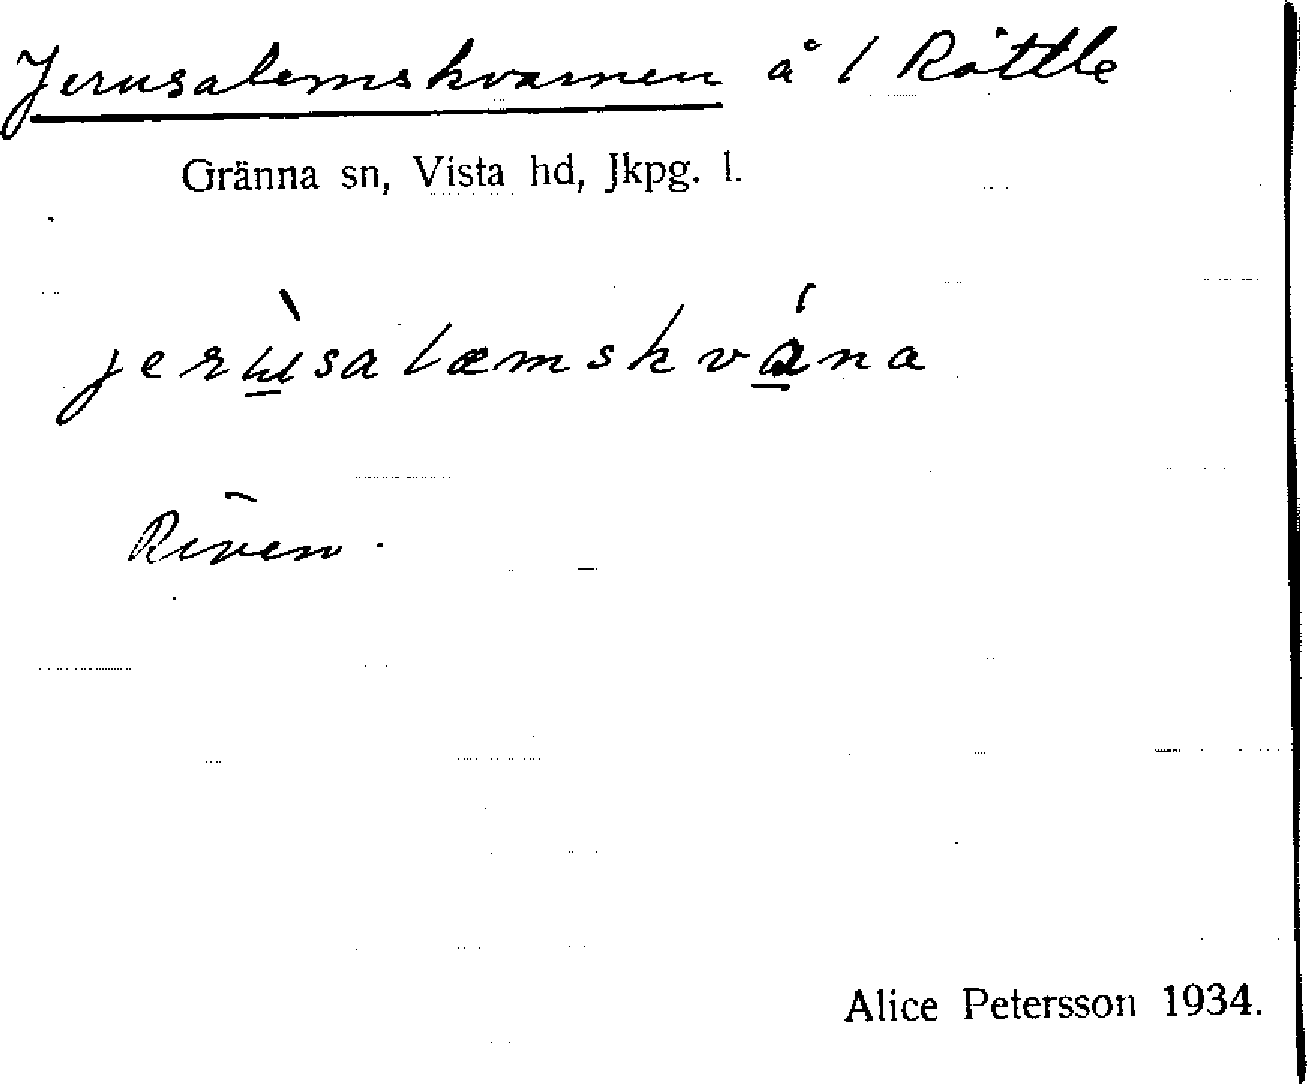 Jerusalemskvarnen å 1 Röttle
Gränna sn, Vista hd, Jkpg. l.
jerùsalæmskvána
Riven.
Alice Petersson 1934.